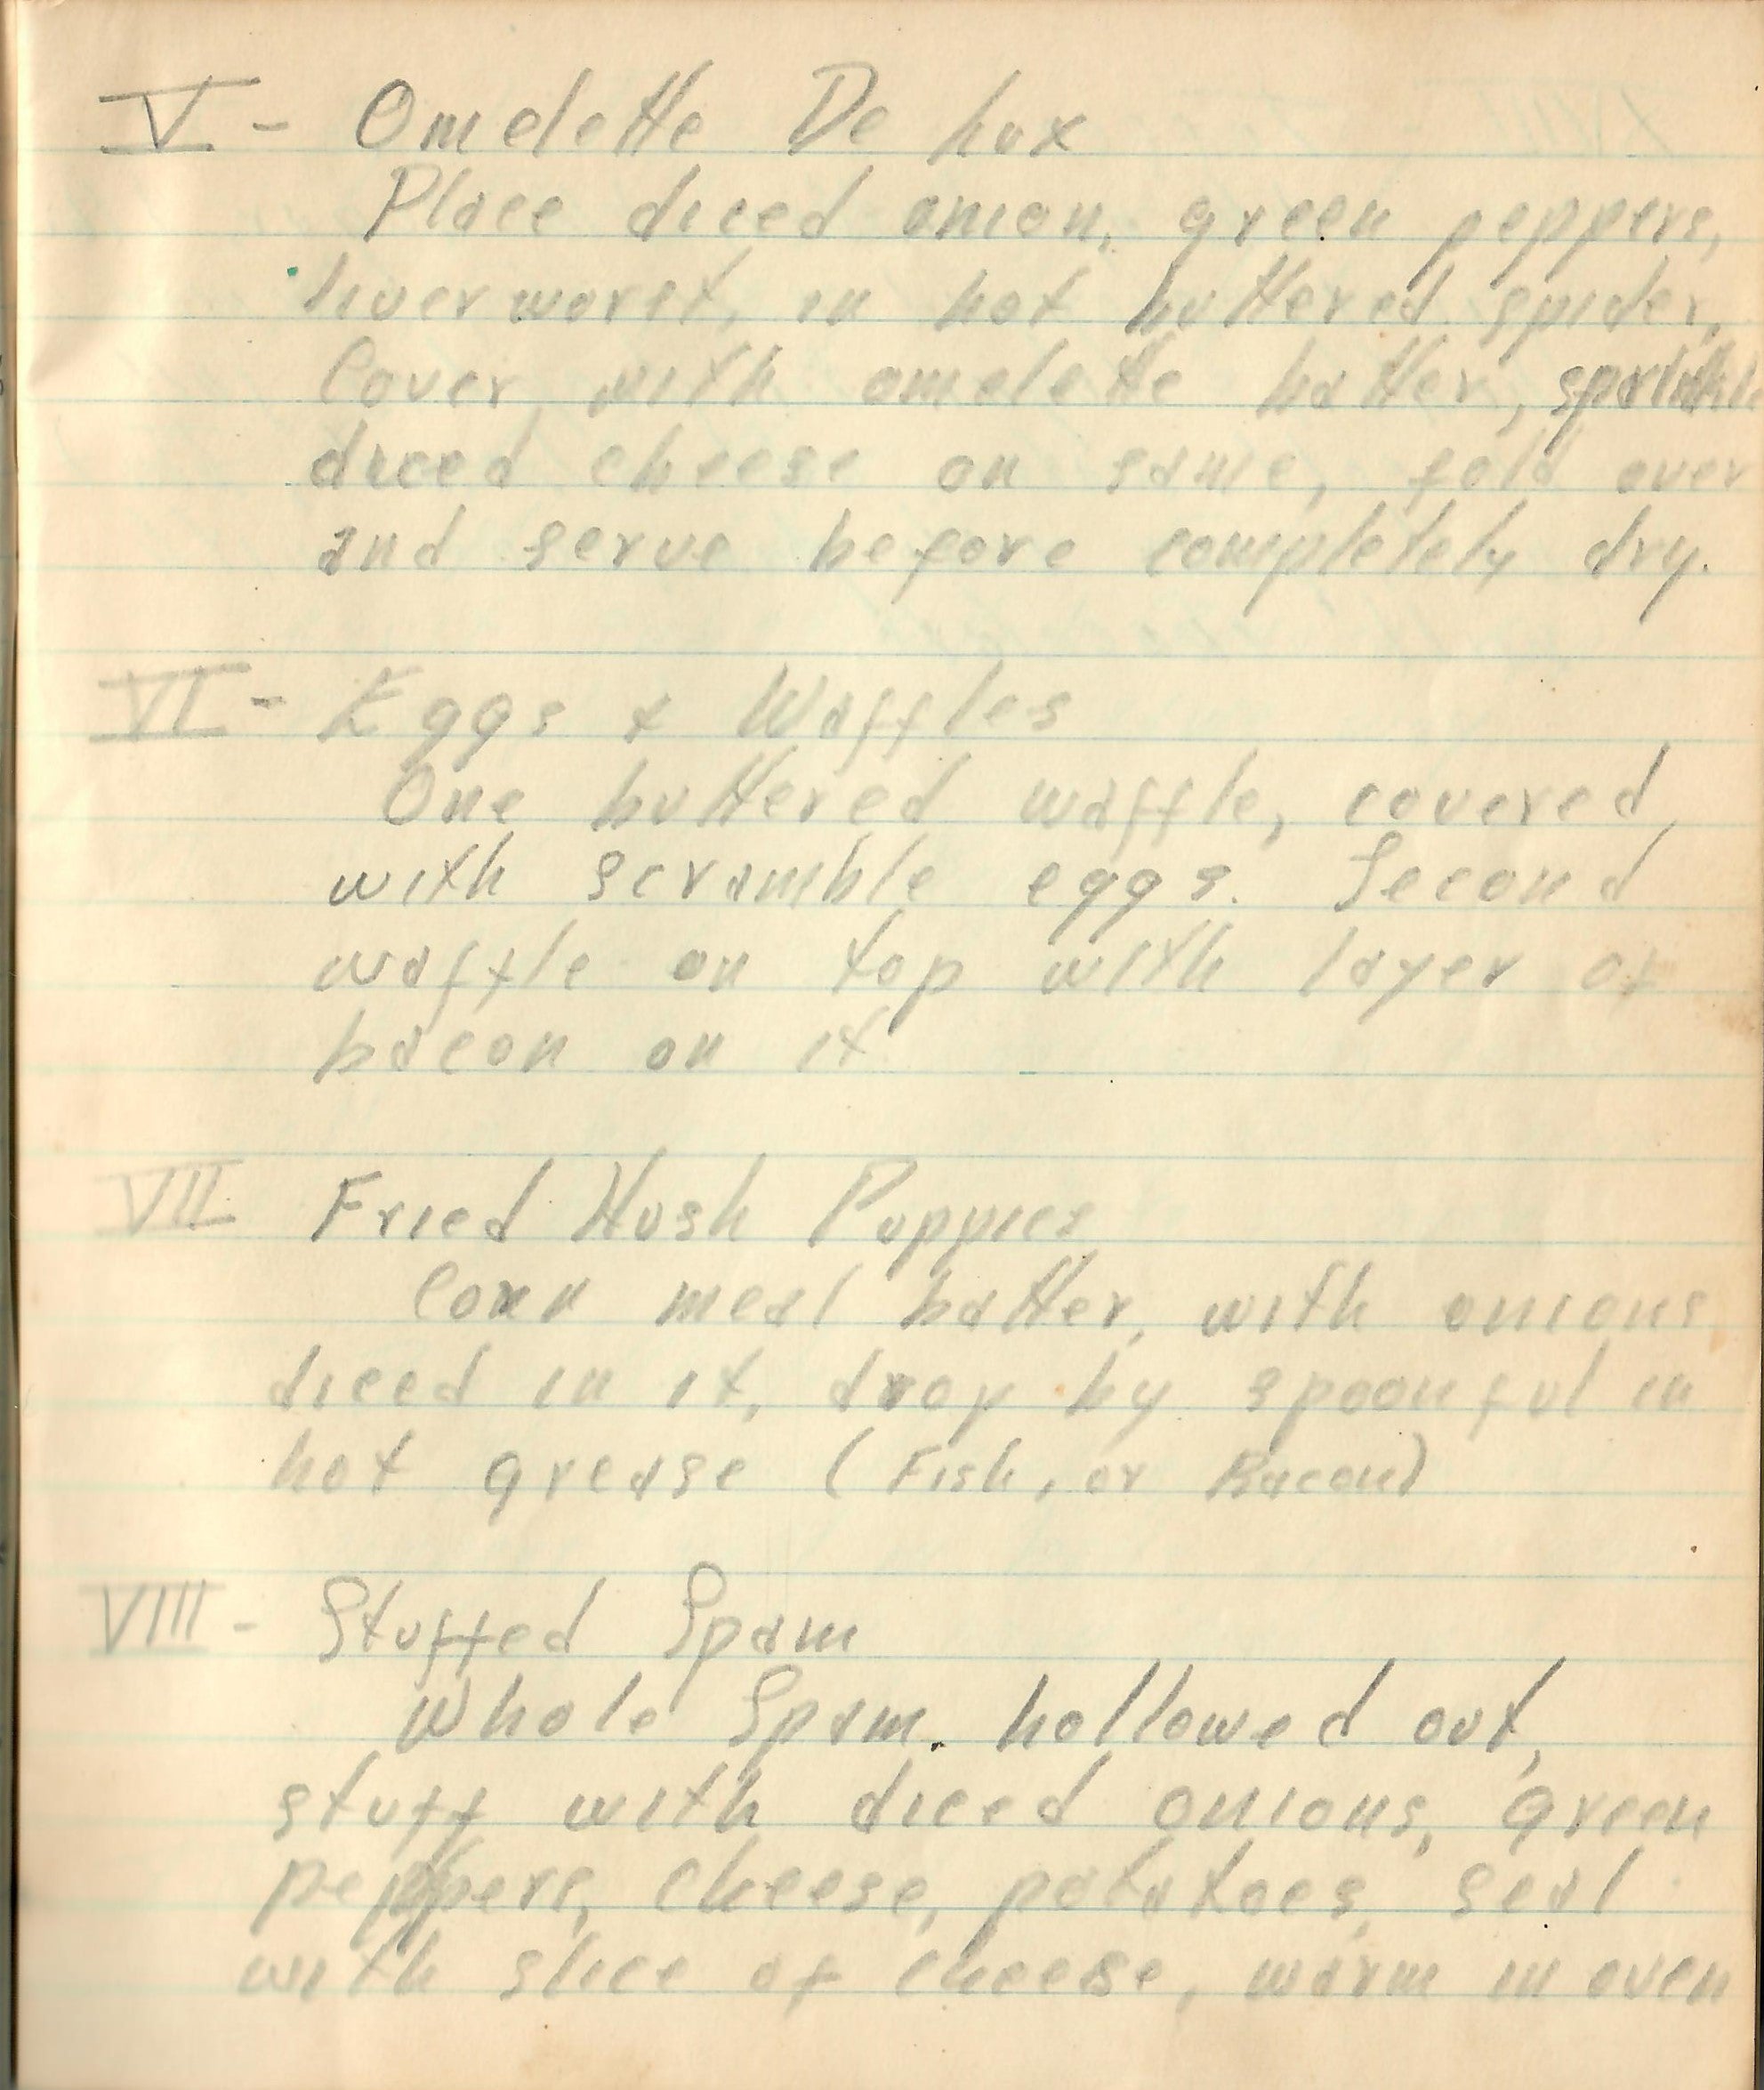 V - Omelette De Lux
Place diced onion, green peppers,
liverworst, in hot buttered spider,
Cover with omelette batter, sprinkle
diced cheese on same, fold over
and serve before completely dry.
VI - Eggs & Waffles
One buttered waffle, covered,
with scramble eggs. Second
waffle on top with layer of
bacon on it
VII Fried Hush Puppies
Corn meal batter, with onions
diced in it, drop by spoonful in
hot grease (Fish, or Bacon)
VIII - Stuffed Spam
Whole Spam. hollowed out,
stuff with diced onions, green
peppers, cheese, potatoes, seal
with slice of cheese, warm in oven